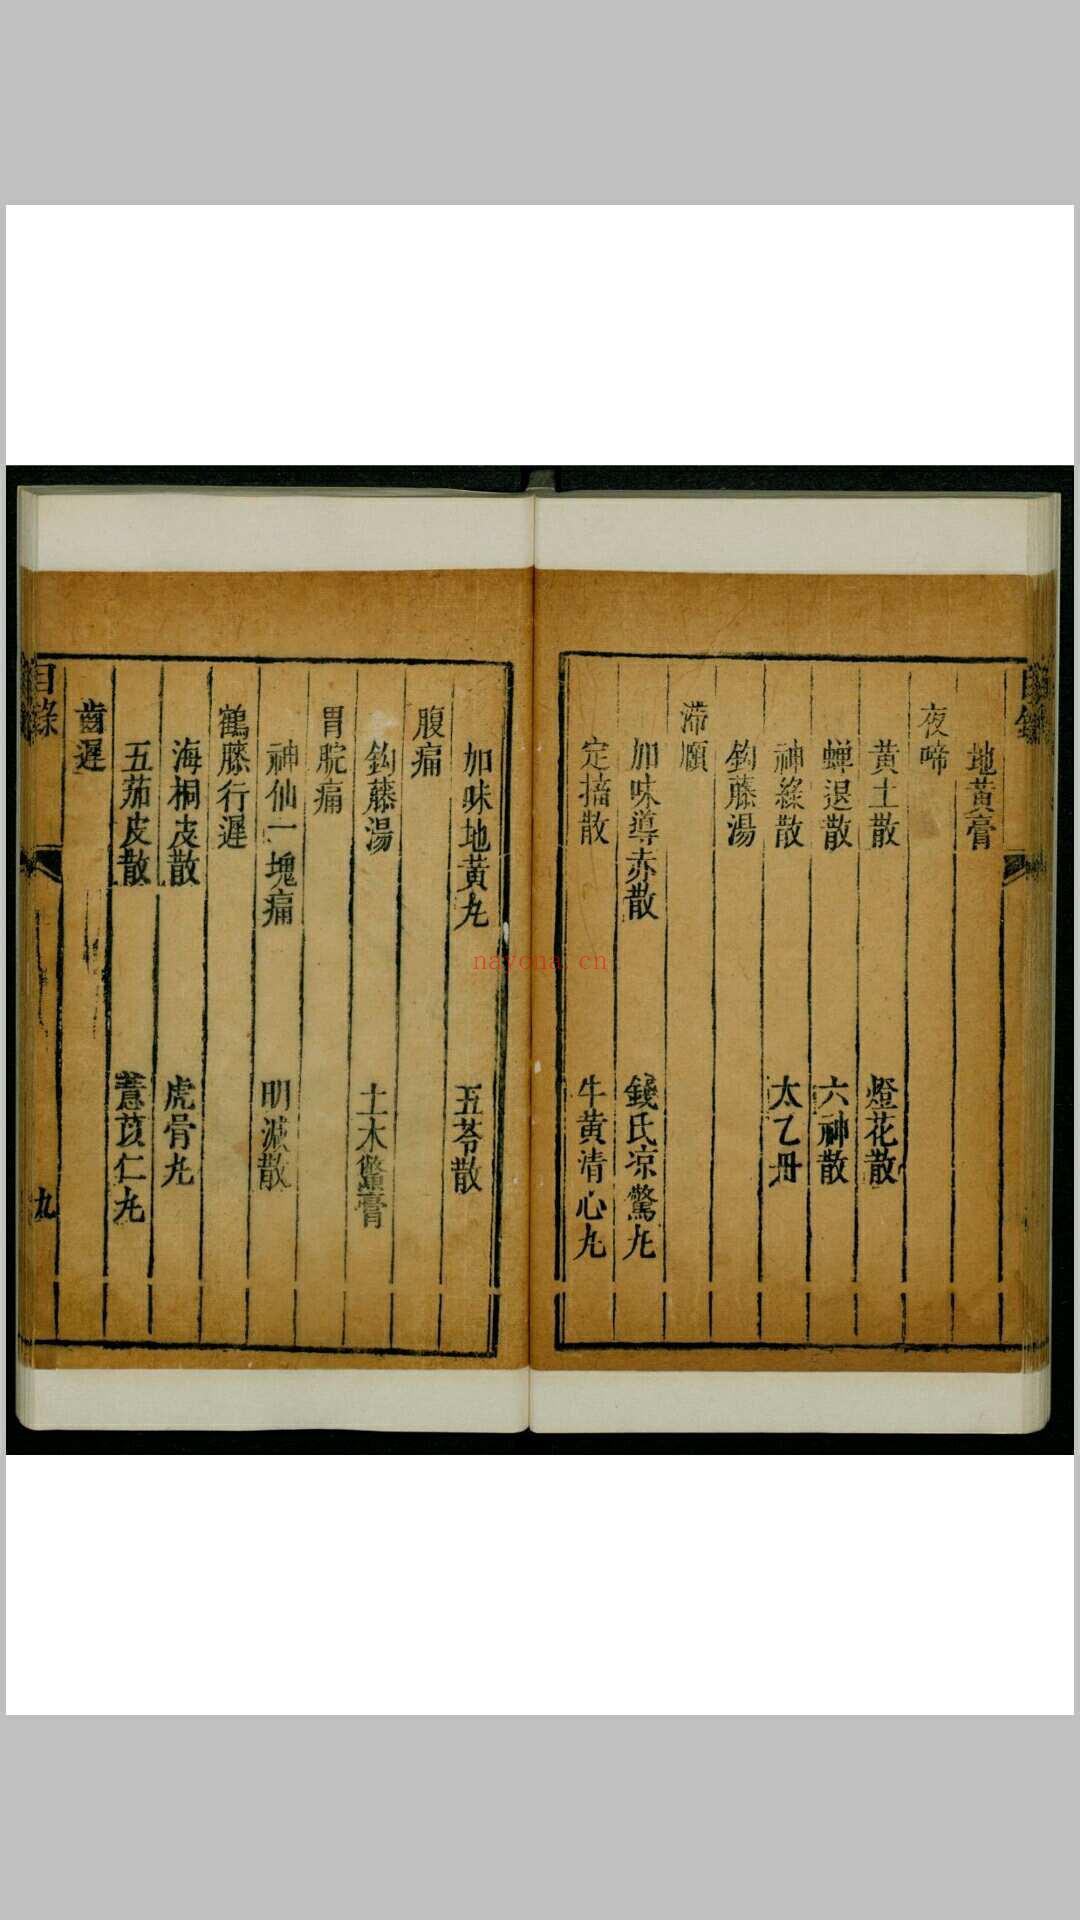 目錄
地黃膏
夜啼
黃土散
燈花散
蟬退散
六神散
神綠散
太乙丹
鈎藤湯
滯頤
加味導赤散
錢氏凉驚九
定搐散
牛黃清心九
加味地黃九
五苓散
腹痛
鈎藤湯
土木鱉膏
胃脘痛
神仙一塊痛
明減散
鶴膝行遲
海桐皮散
虎骨九
五茄皮散
薏苡仁九
齒遲
目錄
九
nayona.cn